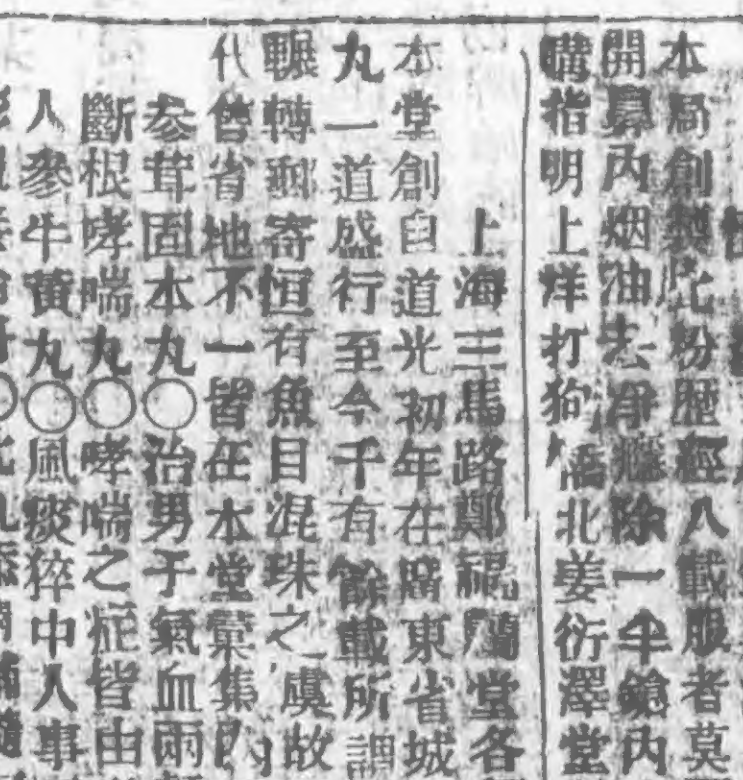 本局創製此粉歷經八載服者莫
開鼻內烟油去淨癮除一半鎗內
購指明上洋打狗橋北姜衍澤堂
上海三馬路鄭福蘭堂各
本堂創自道光初年在廣東省城
丸一道盛行至今千有餘載所謂
輾轉郵寄恒有魚目混珠之虞故
代售省地不一皆在本堂彙集內
參茸固本丸〇治男子氣血兩
斷根哮喘丸〇哮喘之症皆由
人參牛黃丸〇風痰猝中人事